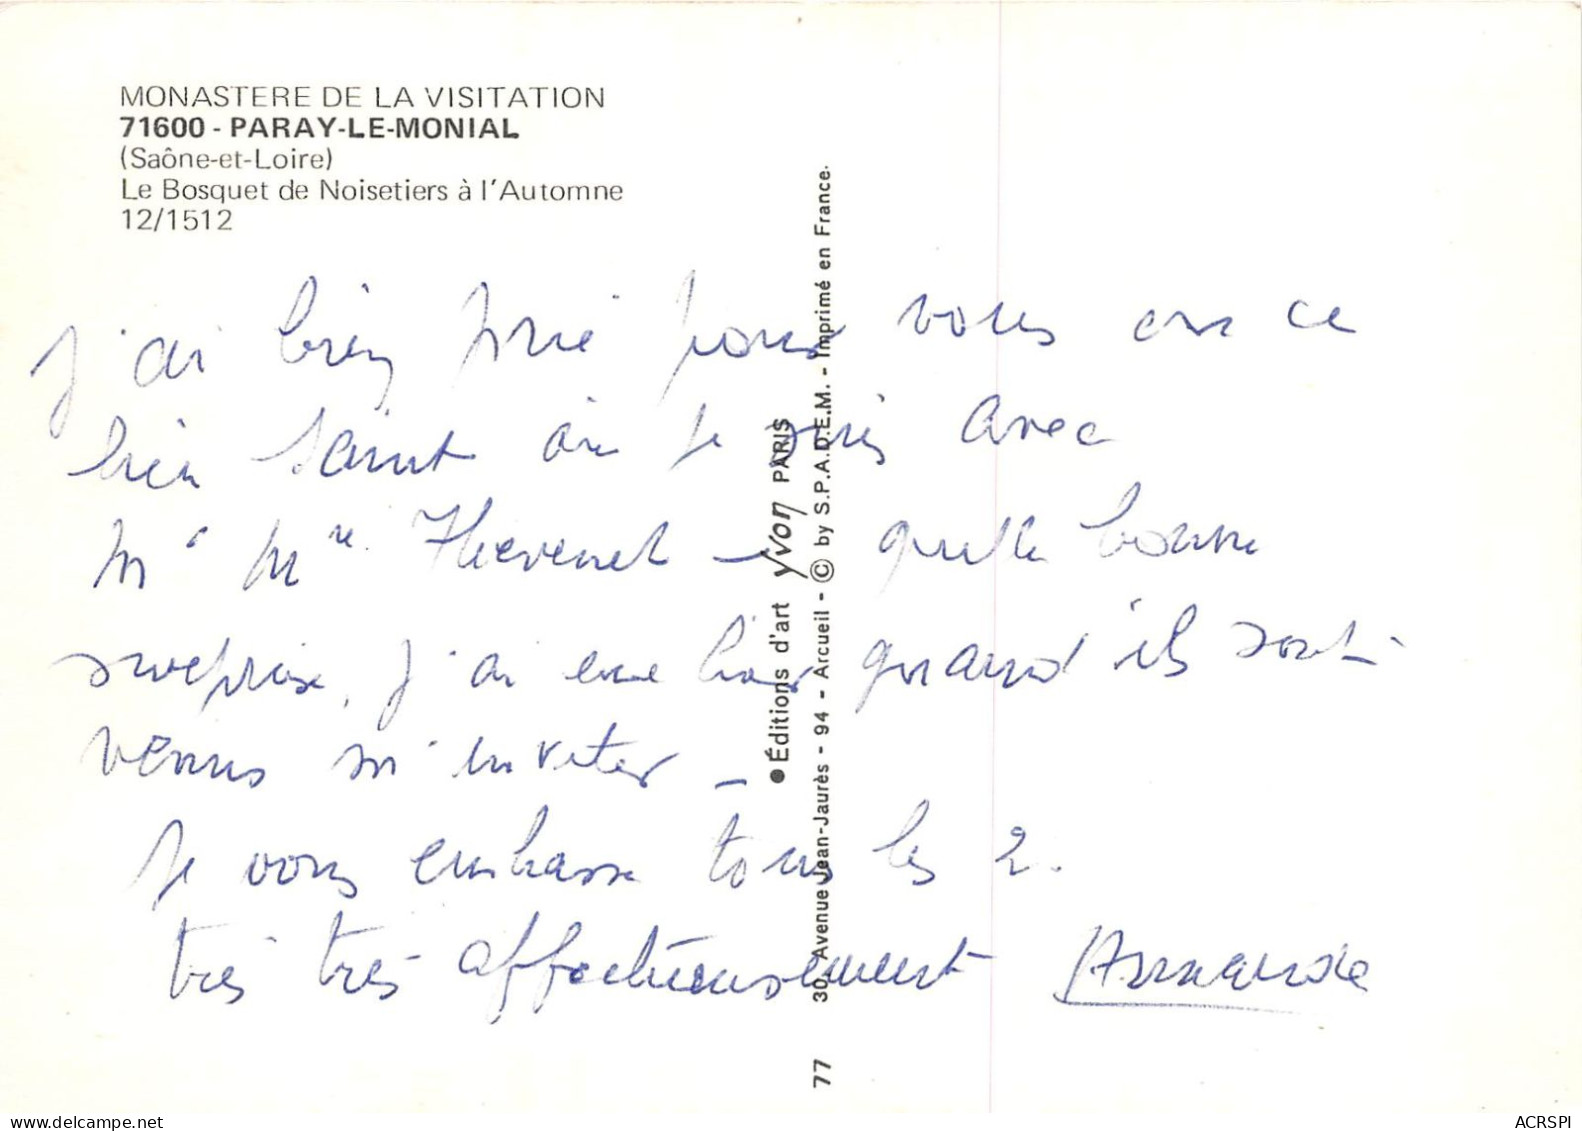 MONASTERE DE LA VISITATION
71600 - PARAY-LE-MONIAL
(Saône-et-Loire)
Le Bosquet de Noisetiers à l'Automne
12/1512
J'ai bien prié pour vous en ce
lieu Saint où je suis avec
Mr Me Thevenet - quelle bonne
surprise, j'ai eue hier quand ils sont
venus m'inviter -
Je vous embrasse tous les 2.
très très affectueusement Armande
●Éditions d'art yvon PARIS
30, Avenue Jean-Jaurès - 94 - Arcueil - © by S.P.A.D.E.M. - Imprimé en France.
77
delcampe.net
ACRSPI